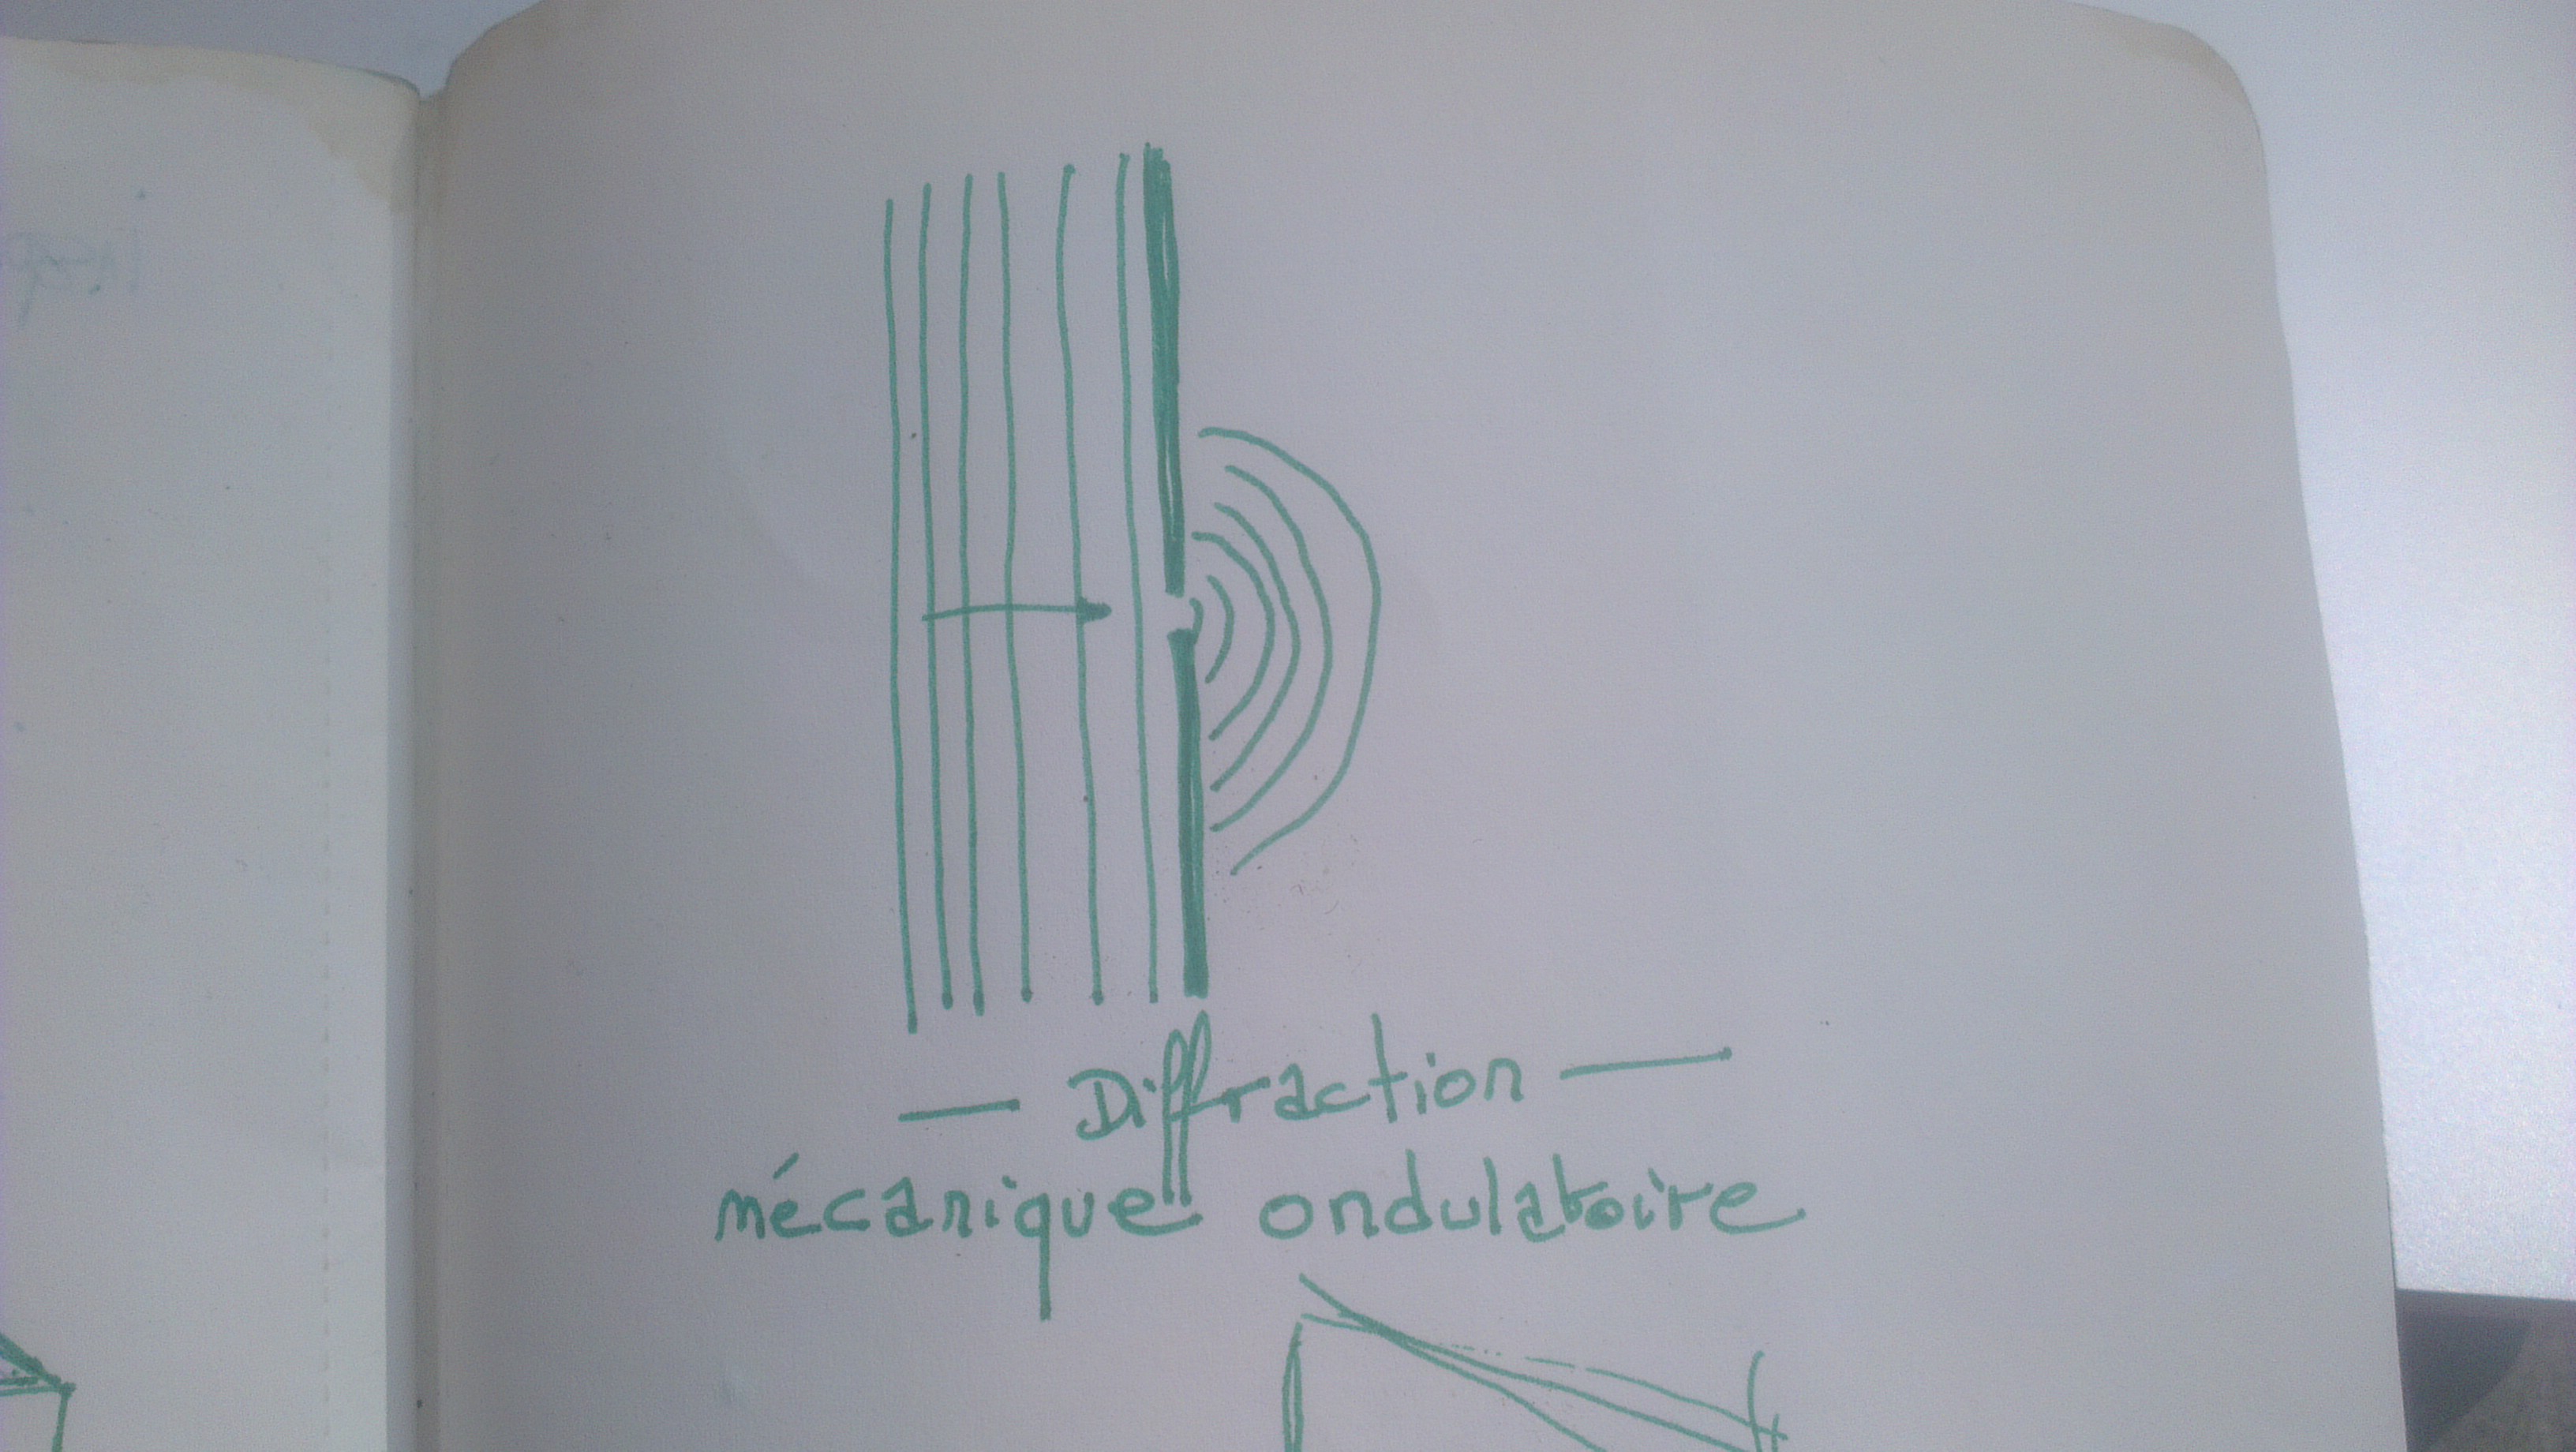 — Diffraction —
mécanique ondulatoire